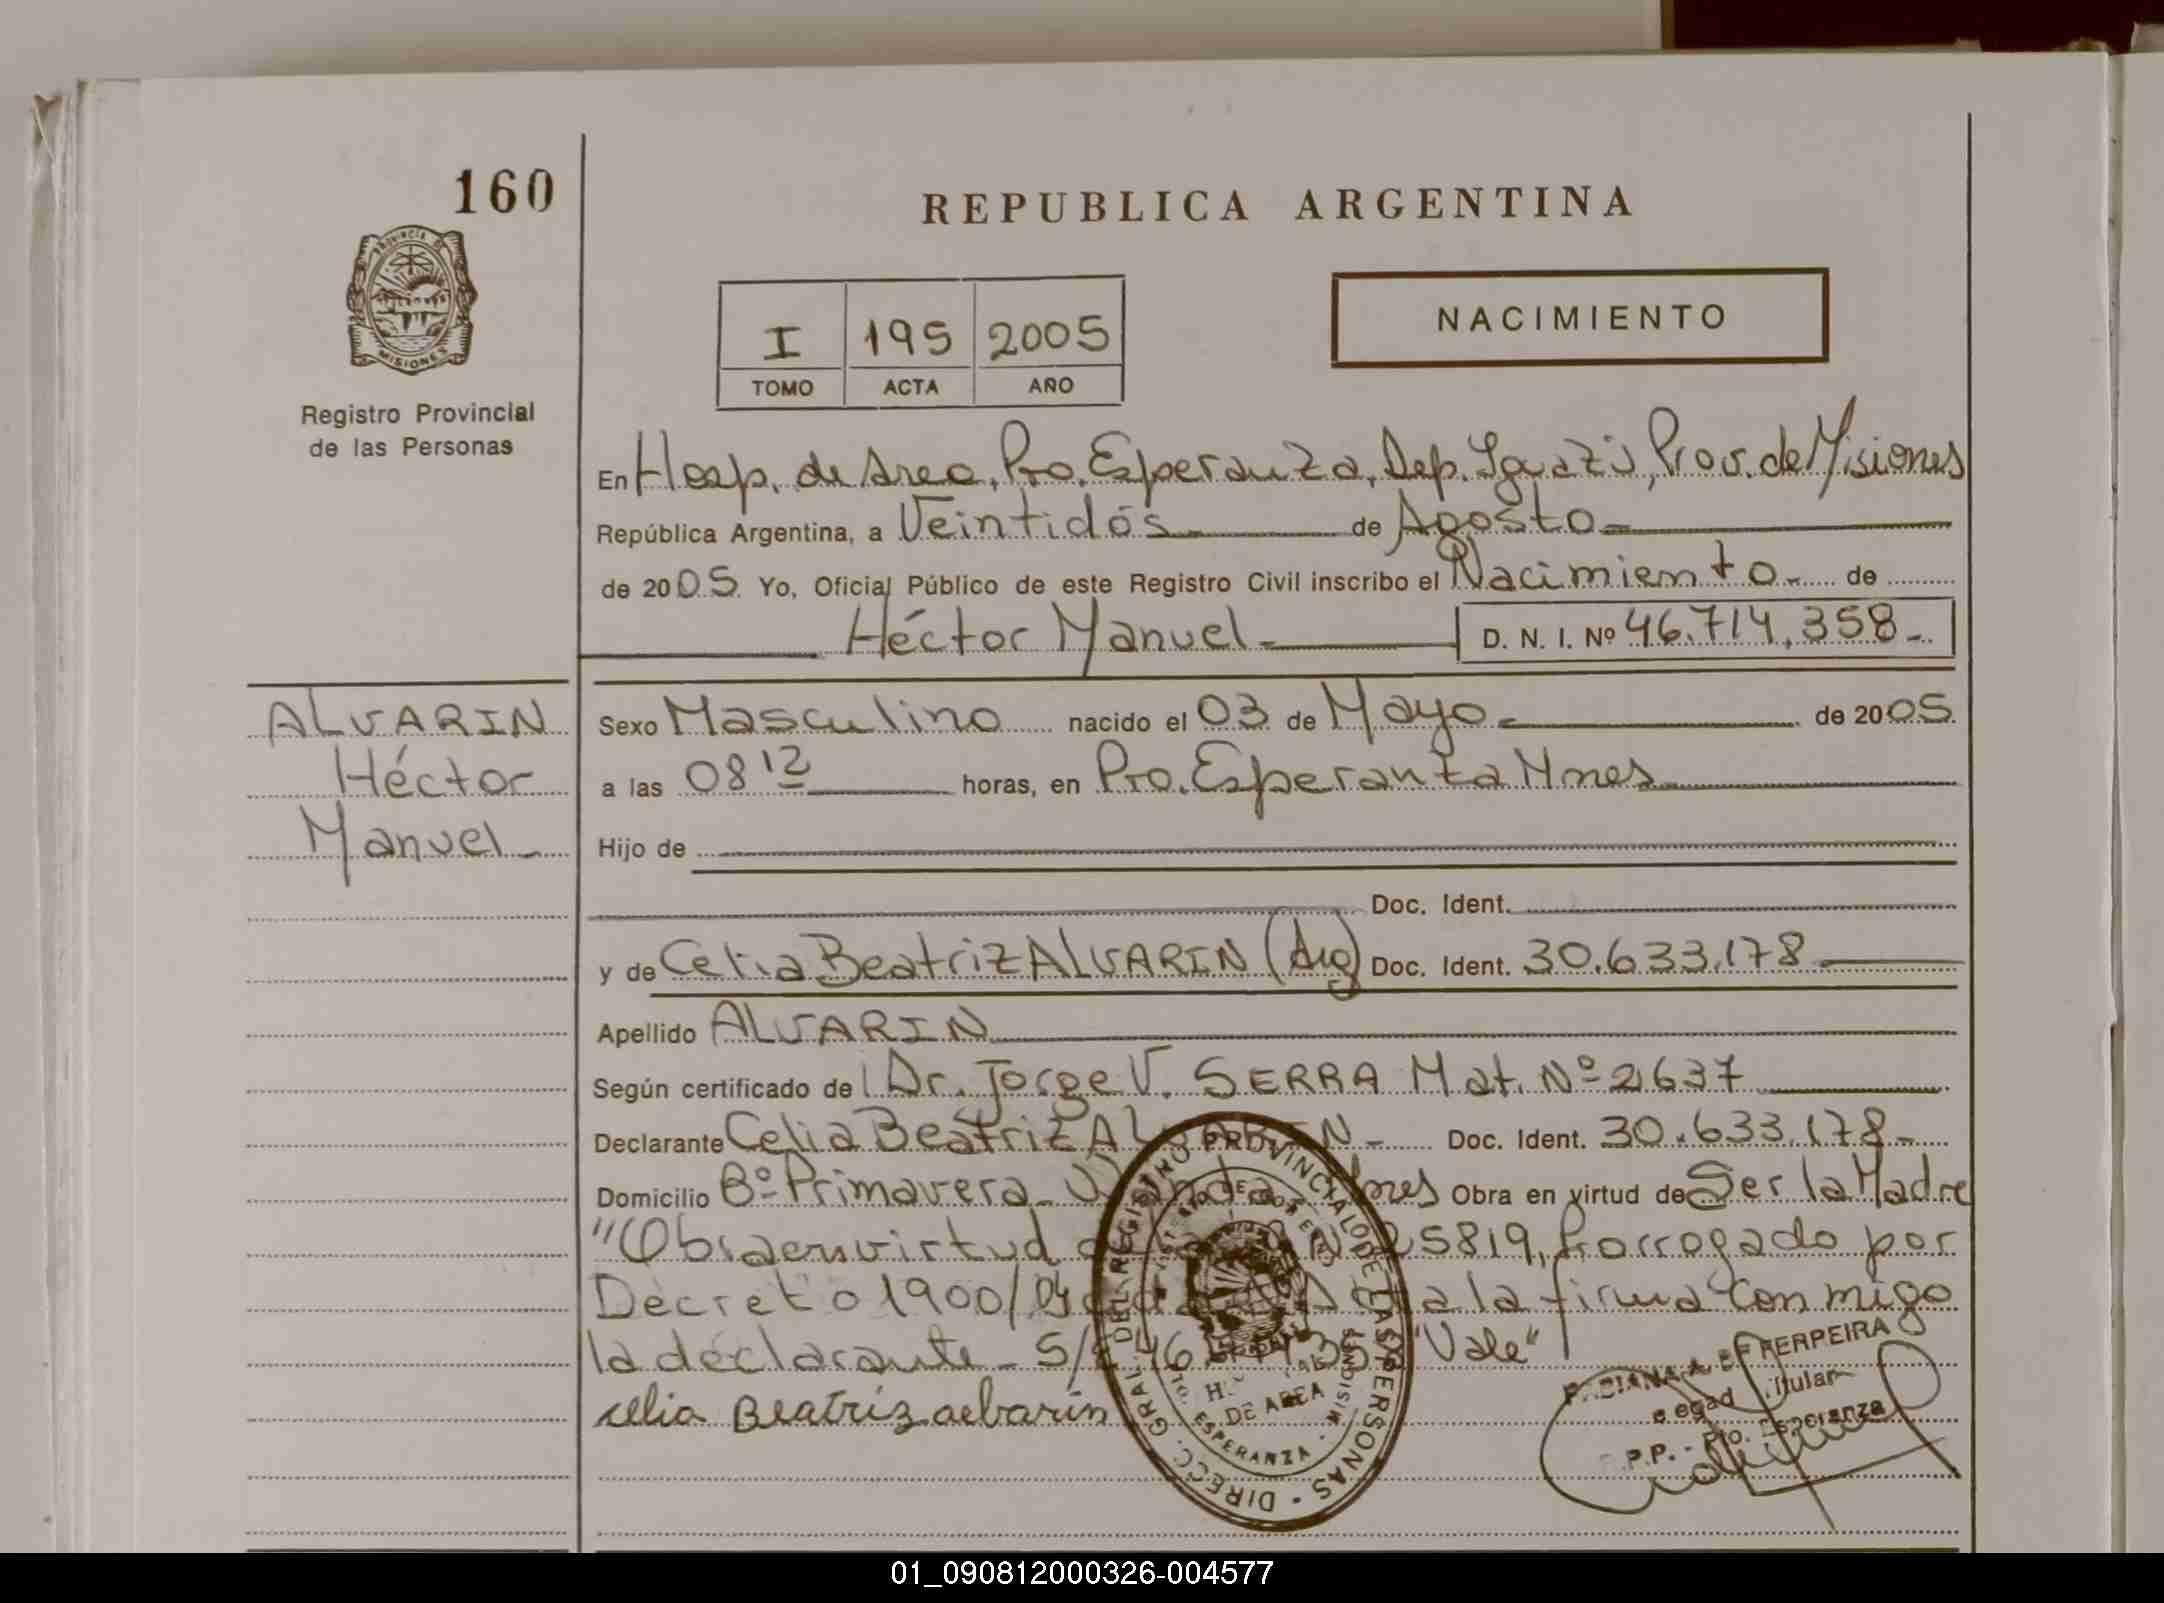 160
REPUBLICA ARGENTINA
PROVINCIA DE
MISIONES
Registro Provincial
de las Personas
I 195 2005
TOMO ACTA AÑO
NACIMIENTO
En Hosp. de Area, Pto. Esperanza, Dep. Iguazú, Prov. de Misiones
República Argentina, a Veintidós de Agosto
de 2005 Yo, Oficial Público de este Registro Civil inscribo el Nacimiento de
Héctor Manuel D. N. I. Nº 46.714.358
ALVARIN
Héctor
Manuel
Sexo Masculino nacido el 03 de Mayo de 2005
a las 08 12 horas, en Pto. Esperanza Mnes
Hijo de
Doc. Ident.
y de Celia Beatriz ALVARIN (Arg) Doc. Ident. 30.633.178
Apellido ALVARIN
Según certificado de Dr. Jorge V. SERRA Mat. Nº 2637
Declarante Celia Beatriz ALVARIN Doc. Ident. 30.633.178
Domicilio Bº Primavera Wanda Mnes Obra en virtud de Ser la Madre
"Obra en virtud 25819, Prorrogado por
Decreto 1900/04 a la firma conmigo
la declarante - S/ 46 "Vale"
celia Beatriz aebarin
DIRECC. GRAL. DEL REGISTRO PROVINCIAL DE LAS PERSONAS
DE AREA
ESPERANZA - MISIONES
FERREIRA
Titular
P.P. - Pto. Esperanza
01_090812000326-004577